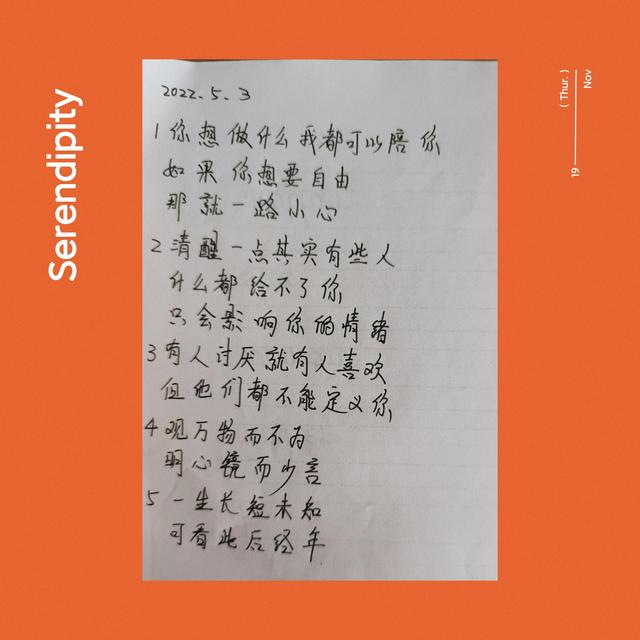 Serendipity
2022.5.3
1 你想做什么我都可以陪你
如果你想要自由
那就一路小心
2 清醒一点其实有些人
什么都给不了你
只会影响你的情绪
3 有人讨厌就有人喜欢
但他们都不能定义你
4 观万物而不为
明心镜而少言
5 一生长短未知
可看此后经年
(Thur.)
Nov
19